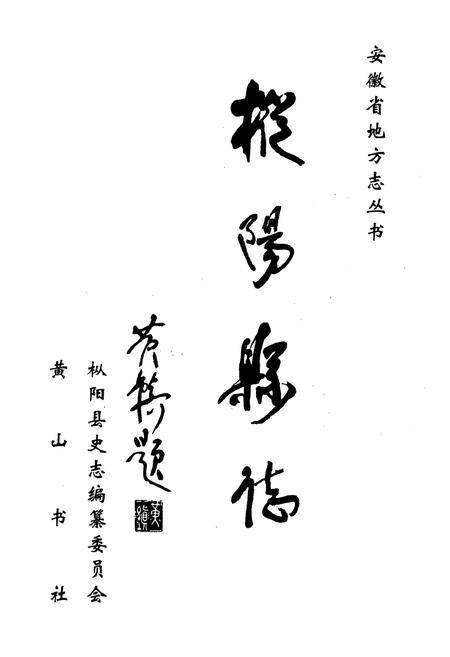 安徽省地方志丛书
樅陽縣誌
黄鎮題
黃鎮
枞阳县史志编纂委员会
黄山书社